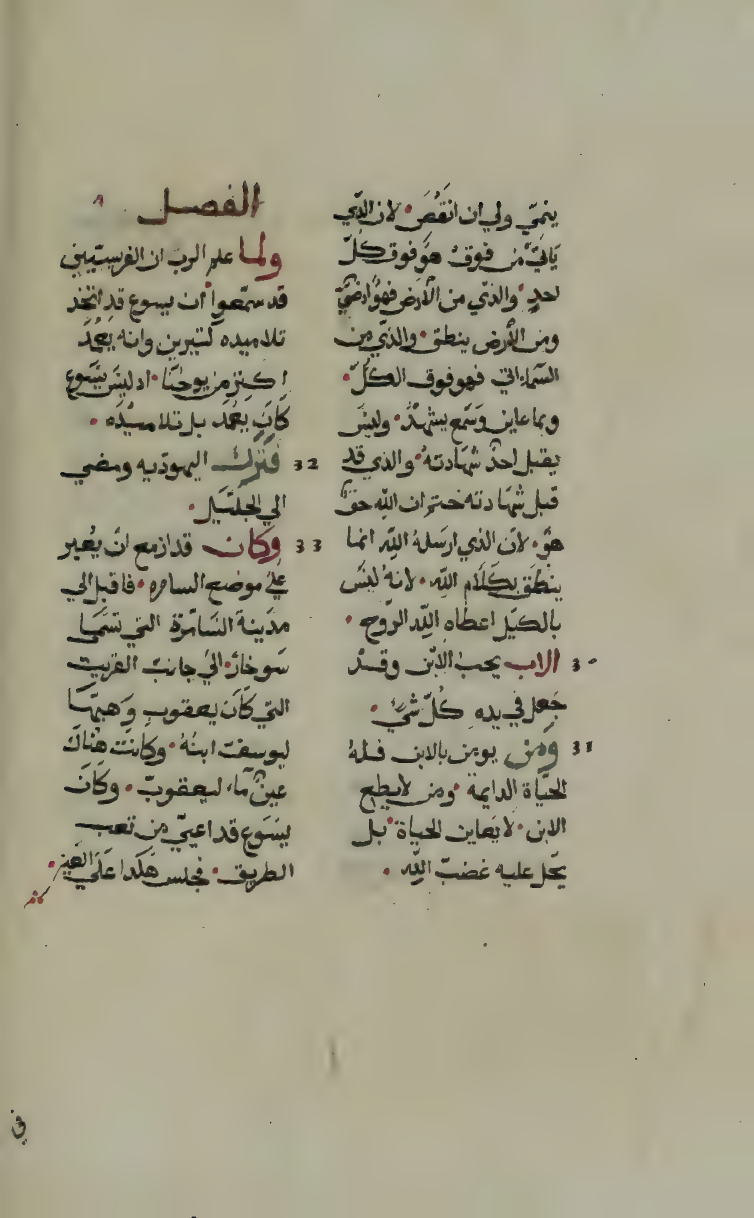 ينمي ولي ان انقص. لان الذي
ياتي من فوق هو فوق كل
احد. والذي من الارض فهو ارضي
ومن الارض ينطق. والذي من
السما اتي فهو فوق الكل.
وبما عاين وسمع يشهد. وليس
يقبل احد شهادته. والذي قد
قبل شهادته ختم ان الله حق
هو. لان الذي ارسله الله انما
ينطق بكلام الله. لانه ليس
بالكيل اعطاه الله الروح.
30 الاب يحب الابن وقد
جعل في يده كل شي.
31 ومن يومن بالابن فله
الحياة الدايمة. ومن لا يطيع
الابن. لا يعاين الحياة. بل
يحل عليه غضب الله.
الفصل
ولما علم الرب ان الفرسيين
قد سمعوا ان يسوع قد اتخذ
تلاميده كتيرين وانه يعمد
اكتر من يوحنا. اد ليس يسوع
كان يعمد بل تلاميده.
32 فترك اليهوديه ومضي
الي الجليل.
33 وكان قد ازمع ان يعبر
علي موضع السامره. فاقبل الي
مدينة السامرة التي تسما
سوخار. الي جانب القريه
التي كان يعقوب وهبها
ليوسف ابنه. وكانت هناك
عين ماء ليعقوب. وكان
يسوع قد اعيي من تعب
الطريق. فجلس هكدا علي العين.
في